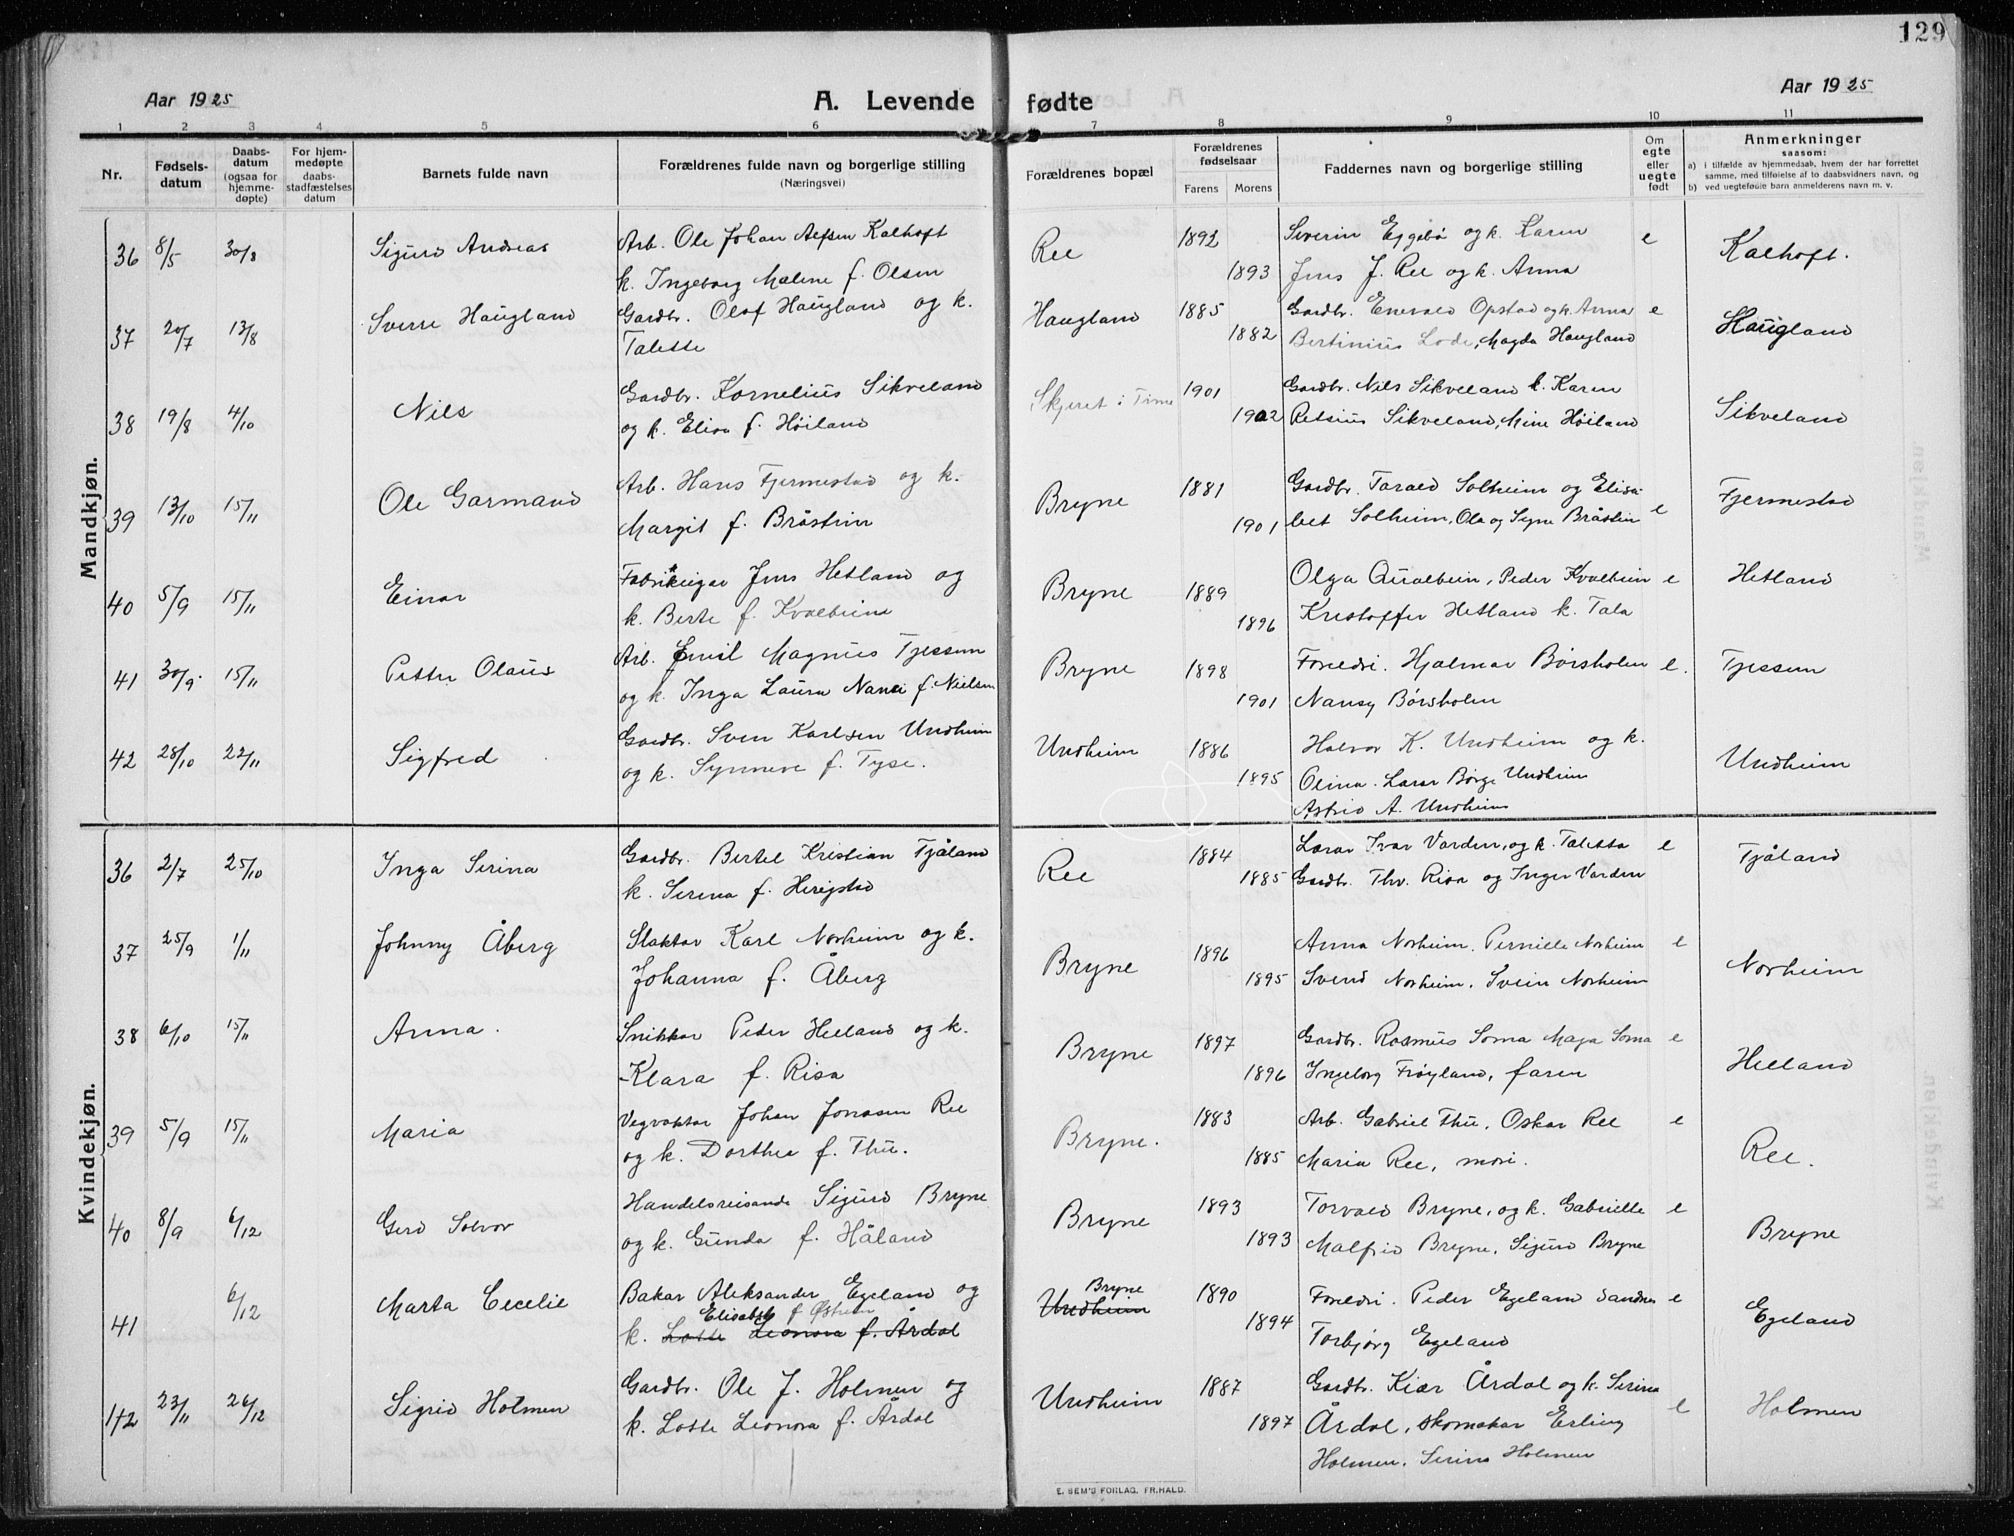 129
Aar 1925 A. Levende fødte Aar 1925
1 2 3 4 5 6 7 8 9 10 11
Nr. Fødselsdatum Daabsdatum (ogsaa for hjemmedøpte) For hjemmedøpte daabsstadfæstelses datum Barnets fulde navn Forældrenes fulde navn og borgerlige stilling (Næringsvei) Forældrenes bopæl Forældrenes fødselsaar Farens Morens Faddernes navn og borgerlige stilling Om egte eller uegte født Anmerkninger saasom:
a) i tilfælde av hjemmedaab, hvem der har forrettet samme, med tilføielse af to daabsvidners navn, og
b) ved uegtefødte barn anmelderens navn m. v.
Mandkjøn.
36 8/5 30/8 Sigurd Andreas Arb. Ole Johan Alfsen Kalhoft Ree 1892 Severin Eggebø og k. Karen e Kalhoft.
k. Ingeborg Malene f. Olsen 1893 Jens J. Ree og k. Anna
37 20/7 13/8 Sverre Haugland Gardbr. Olaf Haugland og k. Haugland 1885 Gardbr. Enevald Opstad og k. Anna e Haugland
Talette 1882 Bertinius Lode, Magda Haugland
38 19/8 4/10 Nils Gardbr. Kornelius Sikveland Skjeret i Time 1901 Gardbr. Nils Sikveland k. Karen Sikveland
og k. Elisa f. Høiland 1902 Retsius Sikveland, Mine Høiland
39 13/10 15/11 Ole Garmand Arb. Hans Fjermestad og k. Bryne 1881 Gardbr. Tarald Solheim og Elisa- e Fjermestad
Margit f. Bråstein 1901 bet Solheim, Ola og Syne Bråstein
40 5/9 15/11 Einar Fabrikeigar Jens Hetland og Bryne 1889 Olga Qualbein, Peder Kvalbein e Hetland
k. Berte f. Kvalbeina 1896 Kristoffer Hetland k. Tala
41 30/9. 15/11 Petter Olaus Arb. Emil Magnus Tjessem Bryne 1898 Foreldri. Hjalmar Børsholm e. Tjessem
og k. Inga Laura Nanci f. Nielsen 1901 Nansy Børsholm
42 28/10 22/11 Sigfred Gardbr. Sven Karlsen Undheim Undheim 1886 Halvor K. Undheim og k. Undheim
og k. Synneve f. Tyse. 1895 Olina. Lærar Børge Undheim
Astrid A. Undheim
Kvindekjøn.
36 2/7 25/10 Inga Serina Gardbr. Bertel Kristian Tjåland Ree 1884 Lærar Ivar Varden, og k. Taletta e Tjåland
k. Serena f. Herigstad 1885 Gardbr. Thv. Risa og Inger Varden
37 25/9 1/11 Johnny Åberg Slaktar Karl Norheim og k. Bryne 1896 Anna Norheim. Pernille Norheim e Norheim
Johanna f. Åberg 1895 Svend Norheim. Svein Norheim
38 6/10 15/11 Anna. Snikkar Peder Helland og k. Bryne 1897 Gardbr. Rasmus Soma Maga Soma e Helland
Klara f. Risa 1896 Ingeborg Frøyland, faren
39 5/9 15/11 Maria Vegvaktar Johan Jonassen Ree Bryne. 1883 Arb. Gabriel Thu, Oskar Ree e Ree.
og k. Dorthea f. Thu. 1885 Maria Ree, mori.
40 8/9 6/12 Gerd Solvor Handelsreisande Sigurd Bryne Bryne 1893 Torvald Bryne, og k. Gabrielle e Bryne
og k. Gunda f. Håland 1893 Malfrid Bryne, Sigurd Bryne
41 6/12 Marta Cecelie Bakar Aleksander Egeland og Bryne Undheim 1890 Foreldri. Peder Egeland Sandnes e Egeland
Elisabet f Østrem
k. Lotte Leonora f. Årdal 1894 Torbjørg Egeland
42 23/11 26/12 Sigrid Holmen Gardbr. Ole J. Holmen og Undheim 1887 Gardbr. Kiær Årdal og k. Serina e Holmen
k. Lotte Leonora f. Årdal 1897 Årdal, skomakar Erling
Holmen. Serina Holmen
E. SEM'S FORLAG. FR.HALD.